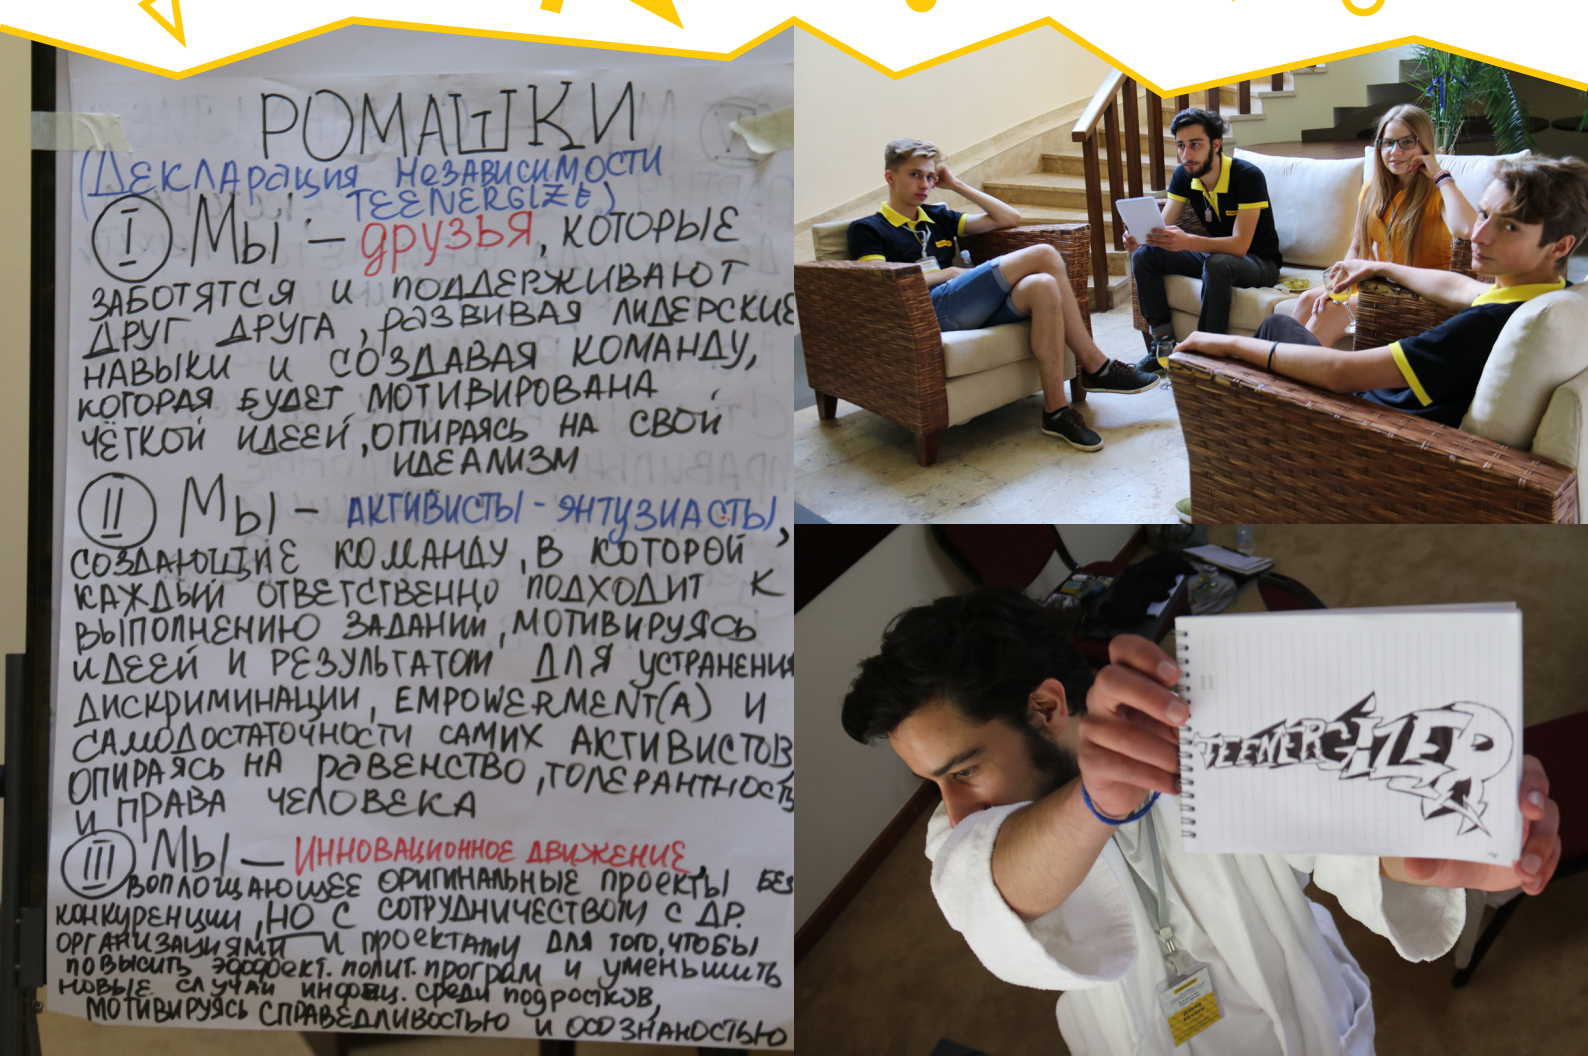 РОМАШКИ
(Декларация Независимости
TEENERGIZE)
I Мы — друзья, которые
заботятся и поддерживают
друг друга, развивая лидерские
навыки и создавая команду,
которая будет мотивирована
чёткой идеей, опираясь на свой
идеализм
II Мы - активисты - энтузиасты,
создающие команду, в которой
каждый ответственно подходит к
выполнению задании, мотивируясь
идеей и результатом для устранения
дискриминации, EMPOWERMENT(A) и
самодостаточности самих активистов
опираясь на равенство, толерантность
и права человека
III Мы — инновационное движение,
воплощающее оригинальные проекты без
конкуренции, но с сотрудничеством с др.
организациями и проектами для того, чтобы
повысить эффект. полит. програм и уменьшить
новые случаи инфец. среди подростков,
мотивируясь справедливостью и осознаностью
TEENERGIZER